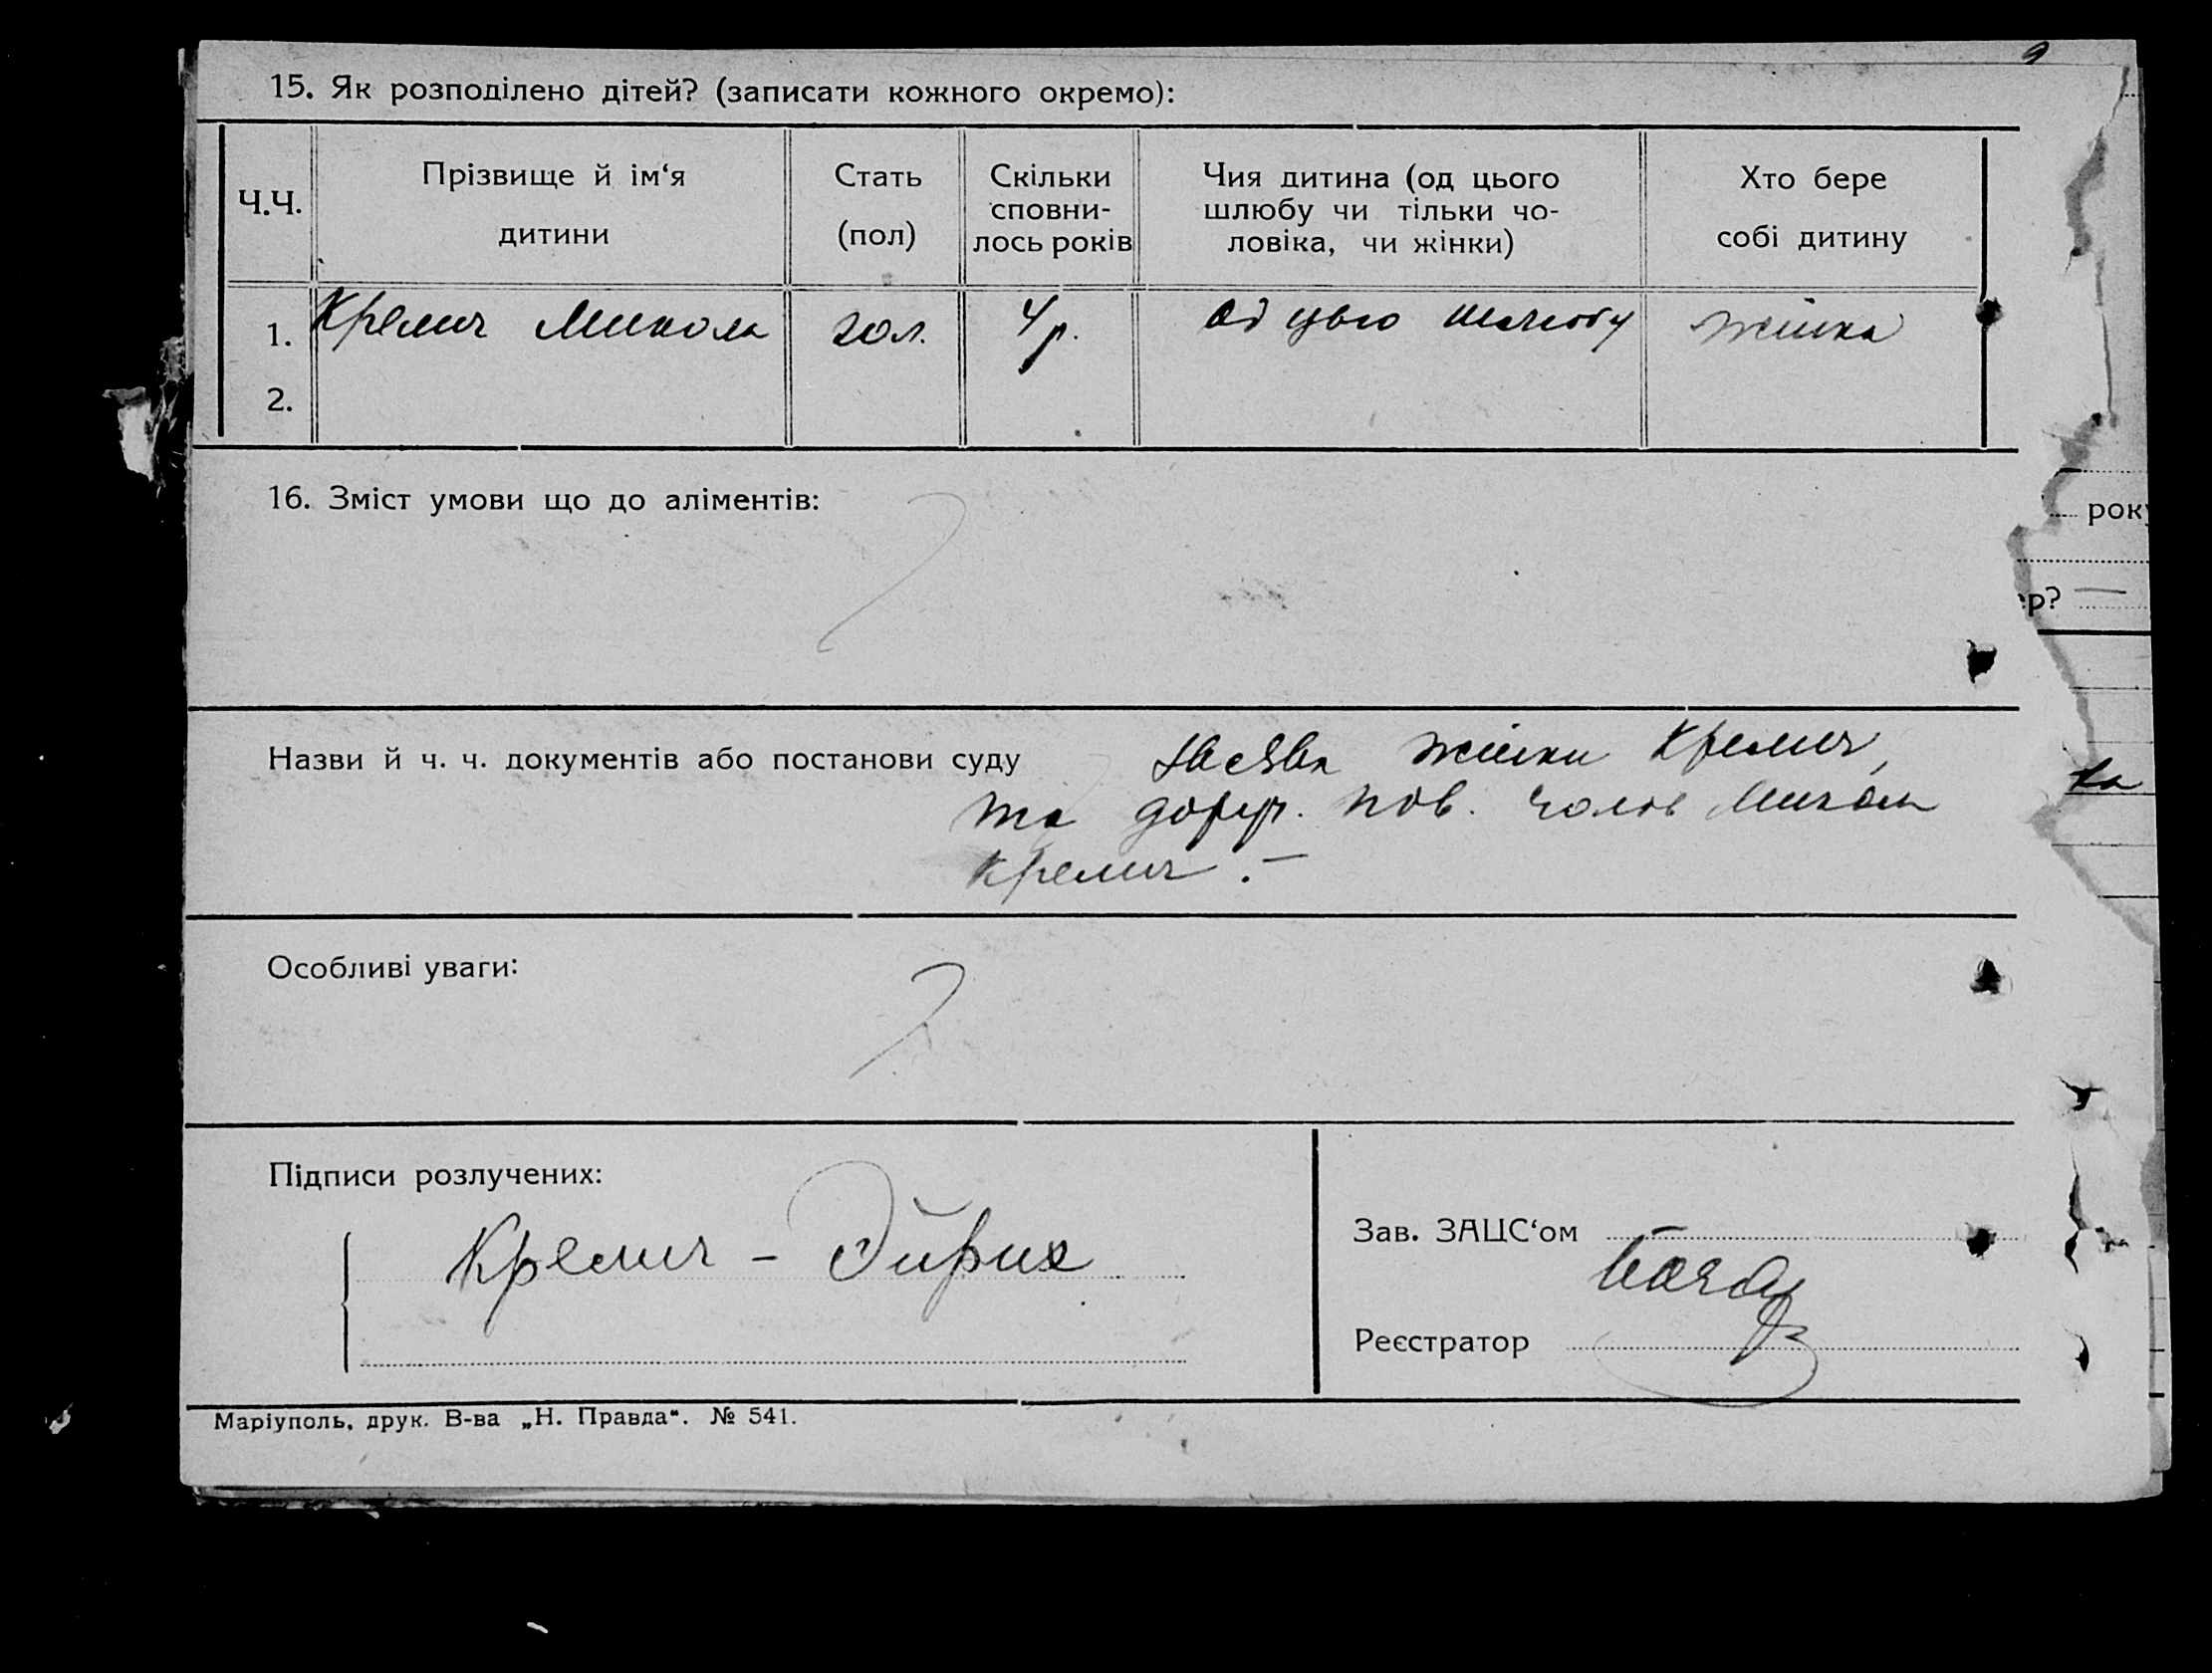 15. Як розподілено дітей? (записати кожного окремо):
Ч.Ч.
Прізвище й ім‘я
дитини
Стать
(пол)
Скільки
сповни-
лось років
Чия дитина (од цього
шлюбу чи тільки чо-
ловіка, чи жінки)
Хто бере
собі дитину
1. Кремич Микола чол. 4 р. од цього шлюбу жінка
2.
16. Зміст умови що до аліментів:
року
ер?
Назви й ч. ч. документів або постанови суду Заява жінки Кремич,
та пов. чолов Микол
Кремич . —
Особливі уваги:
Підписи розлучених:
Кремич -
Зав. ЗАЦС‘ом
Реєстратор
Маріуполь, друк. В-ва „Н. Правда“. № 541.